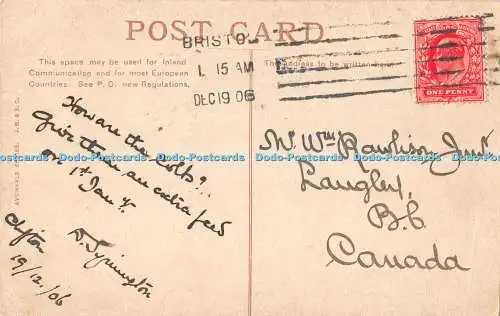 POST CARD.
This space may be used for Inland
Communication and for most European
Countries. See P. O. new Regulations.
The Address to be written here
BRISTOL
1. 15 AM
DEC 19 06
ONE PENNY
How are the Colts?
Give them an extra feed
on 1st Jan y.
Clifton
19/12/06
Mr. Wm Rawlison Junr
Langley
B.C
Canada
Dodo-Postcards Dodo-Postcards Dodo-Postcards Dodo-Postcards
Dodo-Postcards Dodo-Postcards Dodo-Postcards Dodo-Postcards